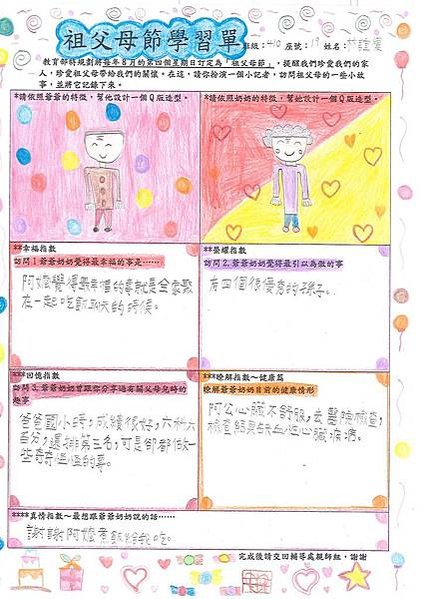 祖父母節學習單
班級：410 座號：19 姓名：林
教育部特規劃將每年8月的第四個星期日訂定為「祖父母節」，提醒我們珍愛我們的家
人，珍愛祖父母帶給我們的關懷。在這，請你扮演一個小記者，訪問祖父母的一些小故
事，並將它記錄下來。
*請依照爺爺的特徵，幫他設計一個Q版造型。
*請依照奶奶的特徵，幫她設計一個Q版造型。
**幸福指數
訪問1爺爺奶奶覺得最幸福的事是……
阿嬤覺得最幸福的事就是全家聚
在一起吃飯聊天的時候。
**榮耀指數
訪問2.爺爺奶奶覺得最引以為傲的事
有四個很優秀的孫子。
***回憶指數
訪問3.爺爺奶奶曾跟你分享過有關父母兒時的
趣事
爸爸國小時，成績很好，六科六
百分，還排第三名，可是卻都做一
些奇奇怪怪的事。
***瞭解指數～健康篇
瞭解爺爺奶奶目前的健康情形
阿公心臟不舒服，去醫院檢查，
檢查師是缺血性心臟疾病。
****真情指數～最想跟爺爺奶奶說的話……
謝謝阿嬤煮飯給我吃。
完成後請交回輔導處親師組，謝謝